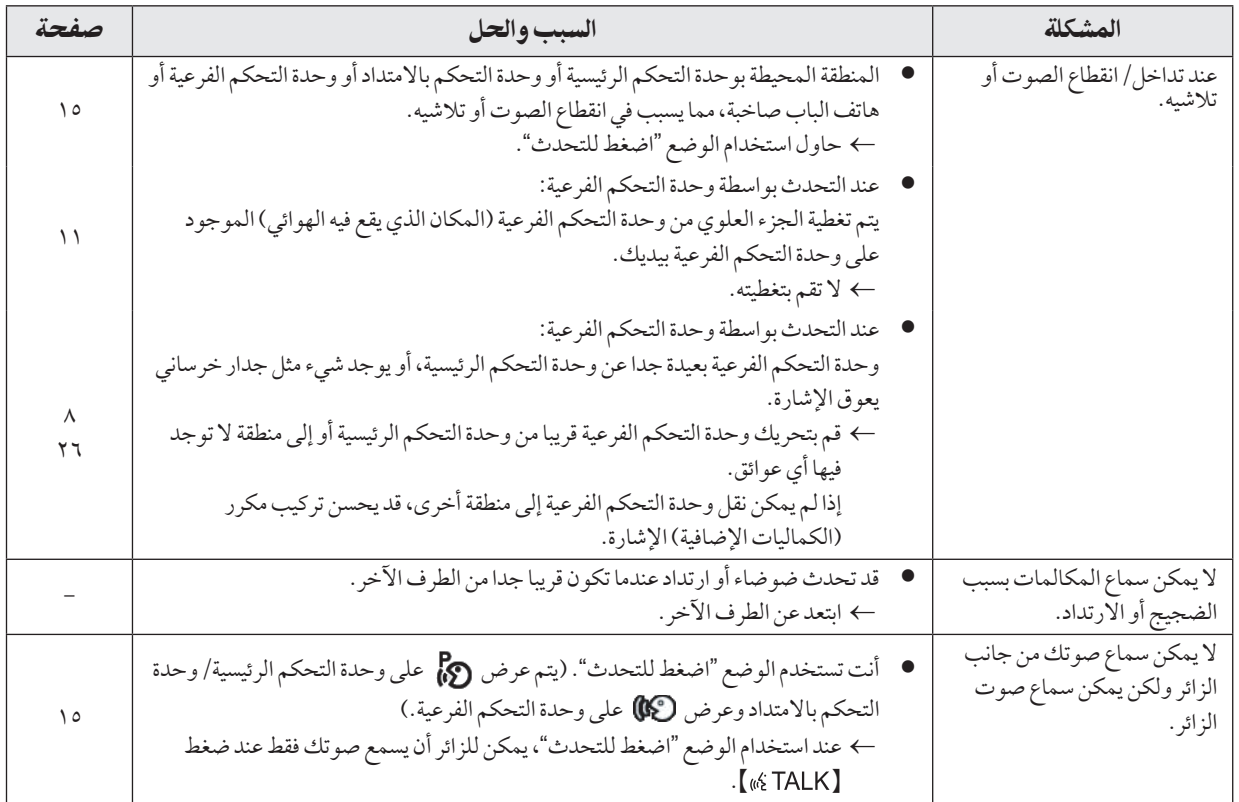 المشكلة
السبب والحل
صفحة
عند تداخل/ انقطاع الصوت أو
تلاشيه.
● المنطقة المحيطة بوحدة التحكم الرئيسية أو وحدة التحكم بالامتداد أو وحدة التحكم الفرعية أو
هاتف الباب صاخبة، مما يسبب في انقطاع الصوت أو تلاشيه.
← حاول استخدام الوضع ”اضغط للتحدث“.
١٥
● عند التحدث بواسطة وحدة التحكم الفرعية:
يتم تغطية الجزء العلوي من وحدة التحكم الفرعية (المكان الذي يقع فيه الهوائي) الموجود
على وحدة التحكم الفرعية بيديك.
← لا تقم بتغطيته.
١١
● عند التحدث بواسطة وحدة التحكم الفرعية:
وحدة التحكم الفرعية بعيدة جدا عن وحدة التحكم الرئيسية، أو يوجد شيء مثل جدار خرساني
يعوق الإشارة.
← قم بتحريك وحدة التحكم الفرعية قريبا من وحدة التحكم الرئيسية أو إلى منطقة لا توجد
فيها أي عوائق.
إذا لم يمكن نقل وحدة التحكم الفرعية إلى منطقة أخرى، قد يحسن تركيب مكرر
(الكماليات الإضافية) الإشارة.
٨
٢٦
لا يمكن سماع المكالمات بسبب
الضجيج أو الارتداد.
● قد تحدث ضوضاء أو ارتداد عندما تكون قريبا جدا من الطرف الآخر.
← ابتعد عن الطرف الآخر.
–
لا يمكن سماع صوتك من جانب
الزائر ولكن يمكن سماع صوت
الزائر.
● أنت تستخدم الوضع ”اضغط للتحدث“. (يتم عرض P على وحدة التحكم الرئيسية/ وحدة
التحكم بالامتداد وعرض على وحدة التحكم الفرعية.)
← عند استخدام الوضع ”اضغط للتحدث“، يمكن للزائر أن يسمع صوتك فقط عند ضغط
【TALK】.
١٥